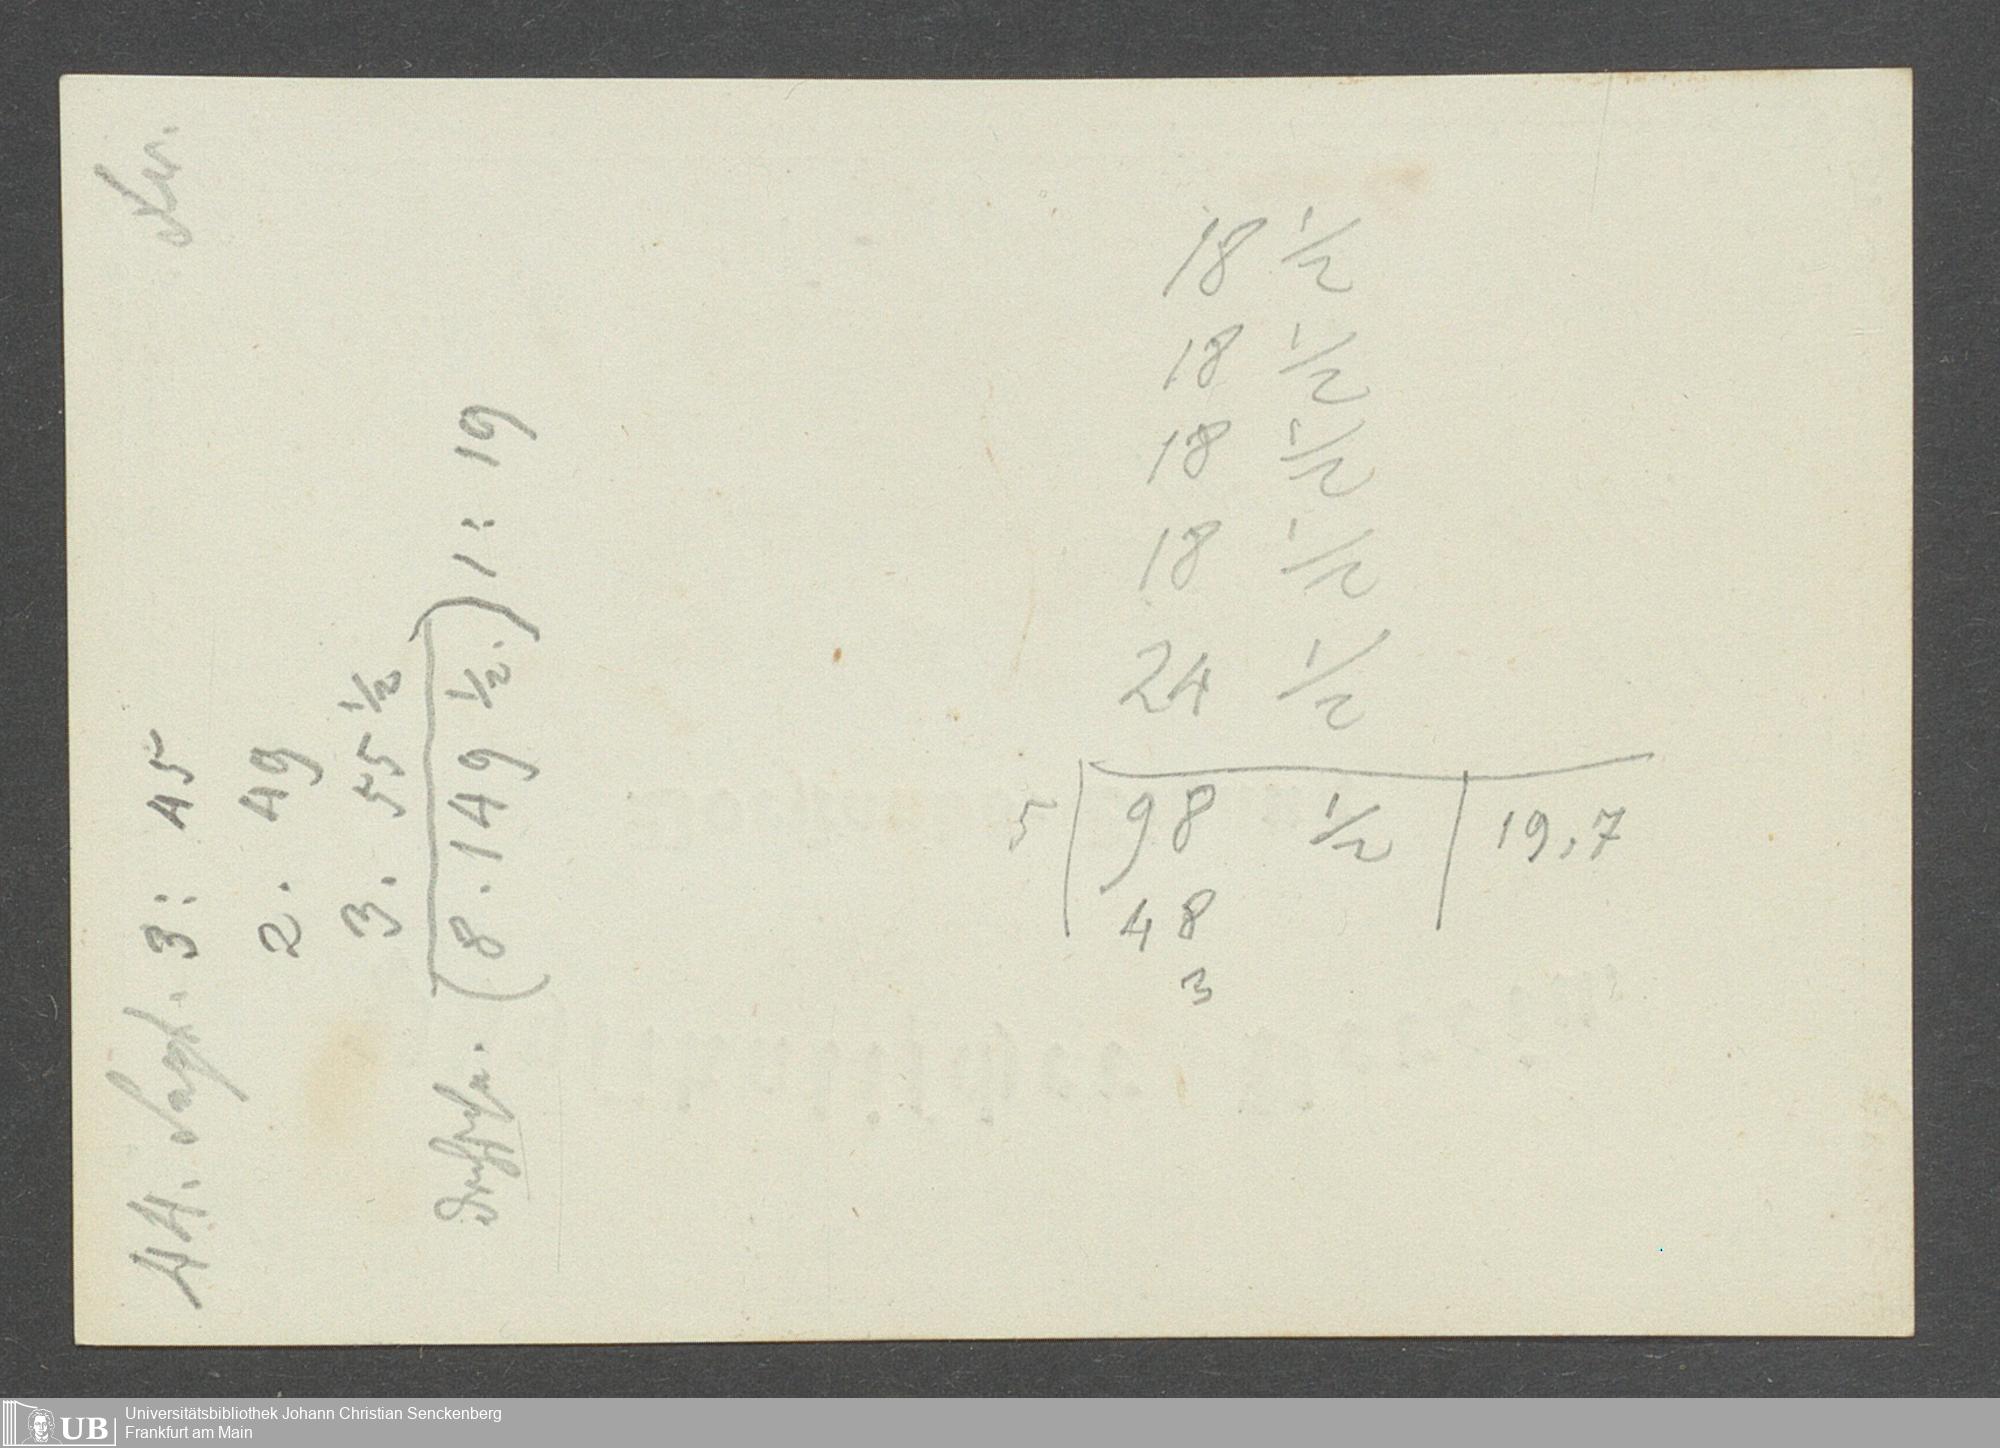 44. Sept. 3: 45
2. 49
3. 55 1/2
(8. 149 1/2.) 1: 19
18 1/2
18 1/2
18 1/2
18 1/2
24 1/2
5 | 98 1/2 | 19,7
48
3
UB
Universitätsbibliothek Johann Christian Senckenberg
Frankfurt am Main